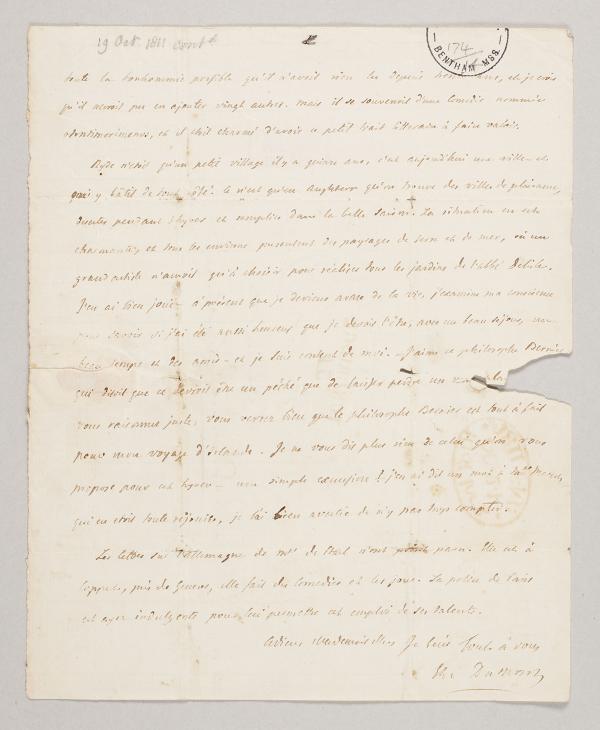 19 Oct 1811 contd
174
BENTHAM MSS.
toute la bonhommie possible qu'il n'avoit rien lu depuis ans, et je crois
qu'il auroit pu en ajouter vingt autres. mais il se souvenoit d'une comedie nommée
et il etoit charmé d'avoir ce petit trait litteraire à faire valoir.
Ryde n'etoit qu'un petit village il y a quinze ans, c'est aujourd'hui une ville et
y bâtit de tout côté. Ce n'est qu'en Angleterre qu'on trouve des villes de plaisance,
desertes pendant l'hyver et remplies dans la belle saison. La situation en est
charmante, et tous les environs presentent des paysages de terre et de mer, où un
grand artiste n'auroit qu'à choisir pour réaliser tous les jardins de l'abbé Delille.
J'en ai bien joui - à présent que je deviens avare de la vie, j'examine ma conscience
pour savoir si j'ai été aussi heureux que je devois l'être, avec un beau sejour, un
beau temps et des amis - et je suis content de moi. J'aime ce philosophe Bernier
qui disoit que ce devroit être un péché que de laisser perdre un
vous raisonnez juste, vous verrez bien que le philosophe Bernier est tout à fait
pour mon voyage d'Irlande. Je ne vous dis plus rien de celui qu'on vous
propose pour cet hyver - une simple excursion! j'en ai dit un mot à
qui en etoit toute réjouie, je l'ai bien avertie de n'y pas trop compter.
Les lettres sur l'Allemagne de Mde de Stael n'ont point paru. Elle est à
Coppet, près de Geneve, elle fait des comedies et les joue. La police de Paris
est assez indulgente pour lui permettre cet emploi de ses talents.
Adieu Mesdemoiselles Je suis tout à vous
Et. Dumont